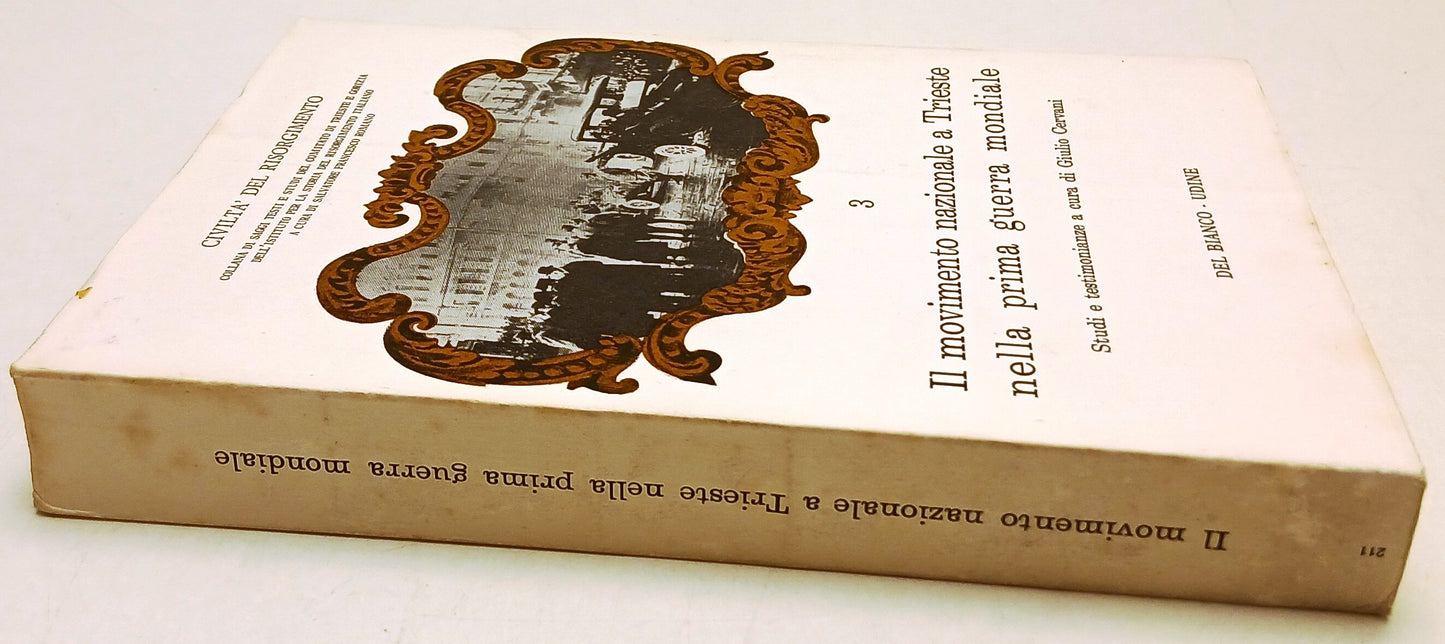 CIVILTA' DEL RISORGIMENTO
COLLANA DI SAGGI TESTI E STUDI DEL COMITATO DI TRIESTE E GORIZIA
DELL'ISTITUTO PER LA STORIA DEL RISORGIMENTO ITALIANO
A CURA DI SALVATORE FRANCESCO ROMANO
3
Il movimento nazionale a Trieste
nella prima guerra mondiale
Studi e testimonianze a cura di Giulio Cervani
DEL BIANCO · UDINE
Il movimento nazionale a Trieste nella prima guerra mondiale
211